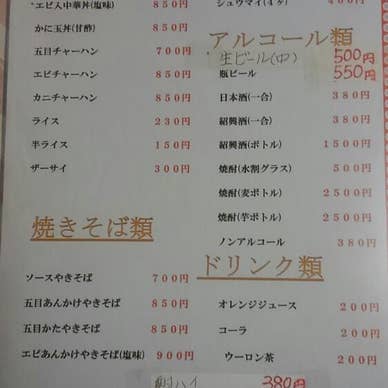 エビ入中華丼(塩味) 850円
かに玉丼(甘酢) 850円
五目チャーハン 700円
エビチャーハン 850円
カニチャーハン 850円
ライス 230円
半ライス 150円
ザーサイ 300円
焼きそば類
ソースやきそば 700円
五目あんかけやきそば 850円
五目かたやきそば 850円
エビあんかけやきそば(塩味) 900円
シュウマイ(4ヶ) 400円
アルコール類
生ビール(中) 500円
瓶ビール 550円
日本酒(一合) 380円
紹興酒(一合) 380円
紹興酒(ボトル) 1500円
焼酎(水割グラス) 500円
焼酎(麦ボトル) 2500円
焼酎(芋ボトル) 2500円
ノンアルコール 380円
ドリンク類
オレンジジュース 200円
コーラ 200円
ウーロン茶 200円
酎ハイ 380円